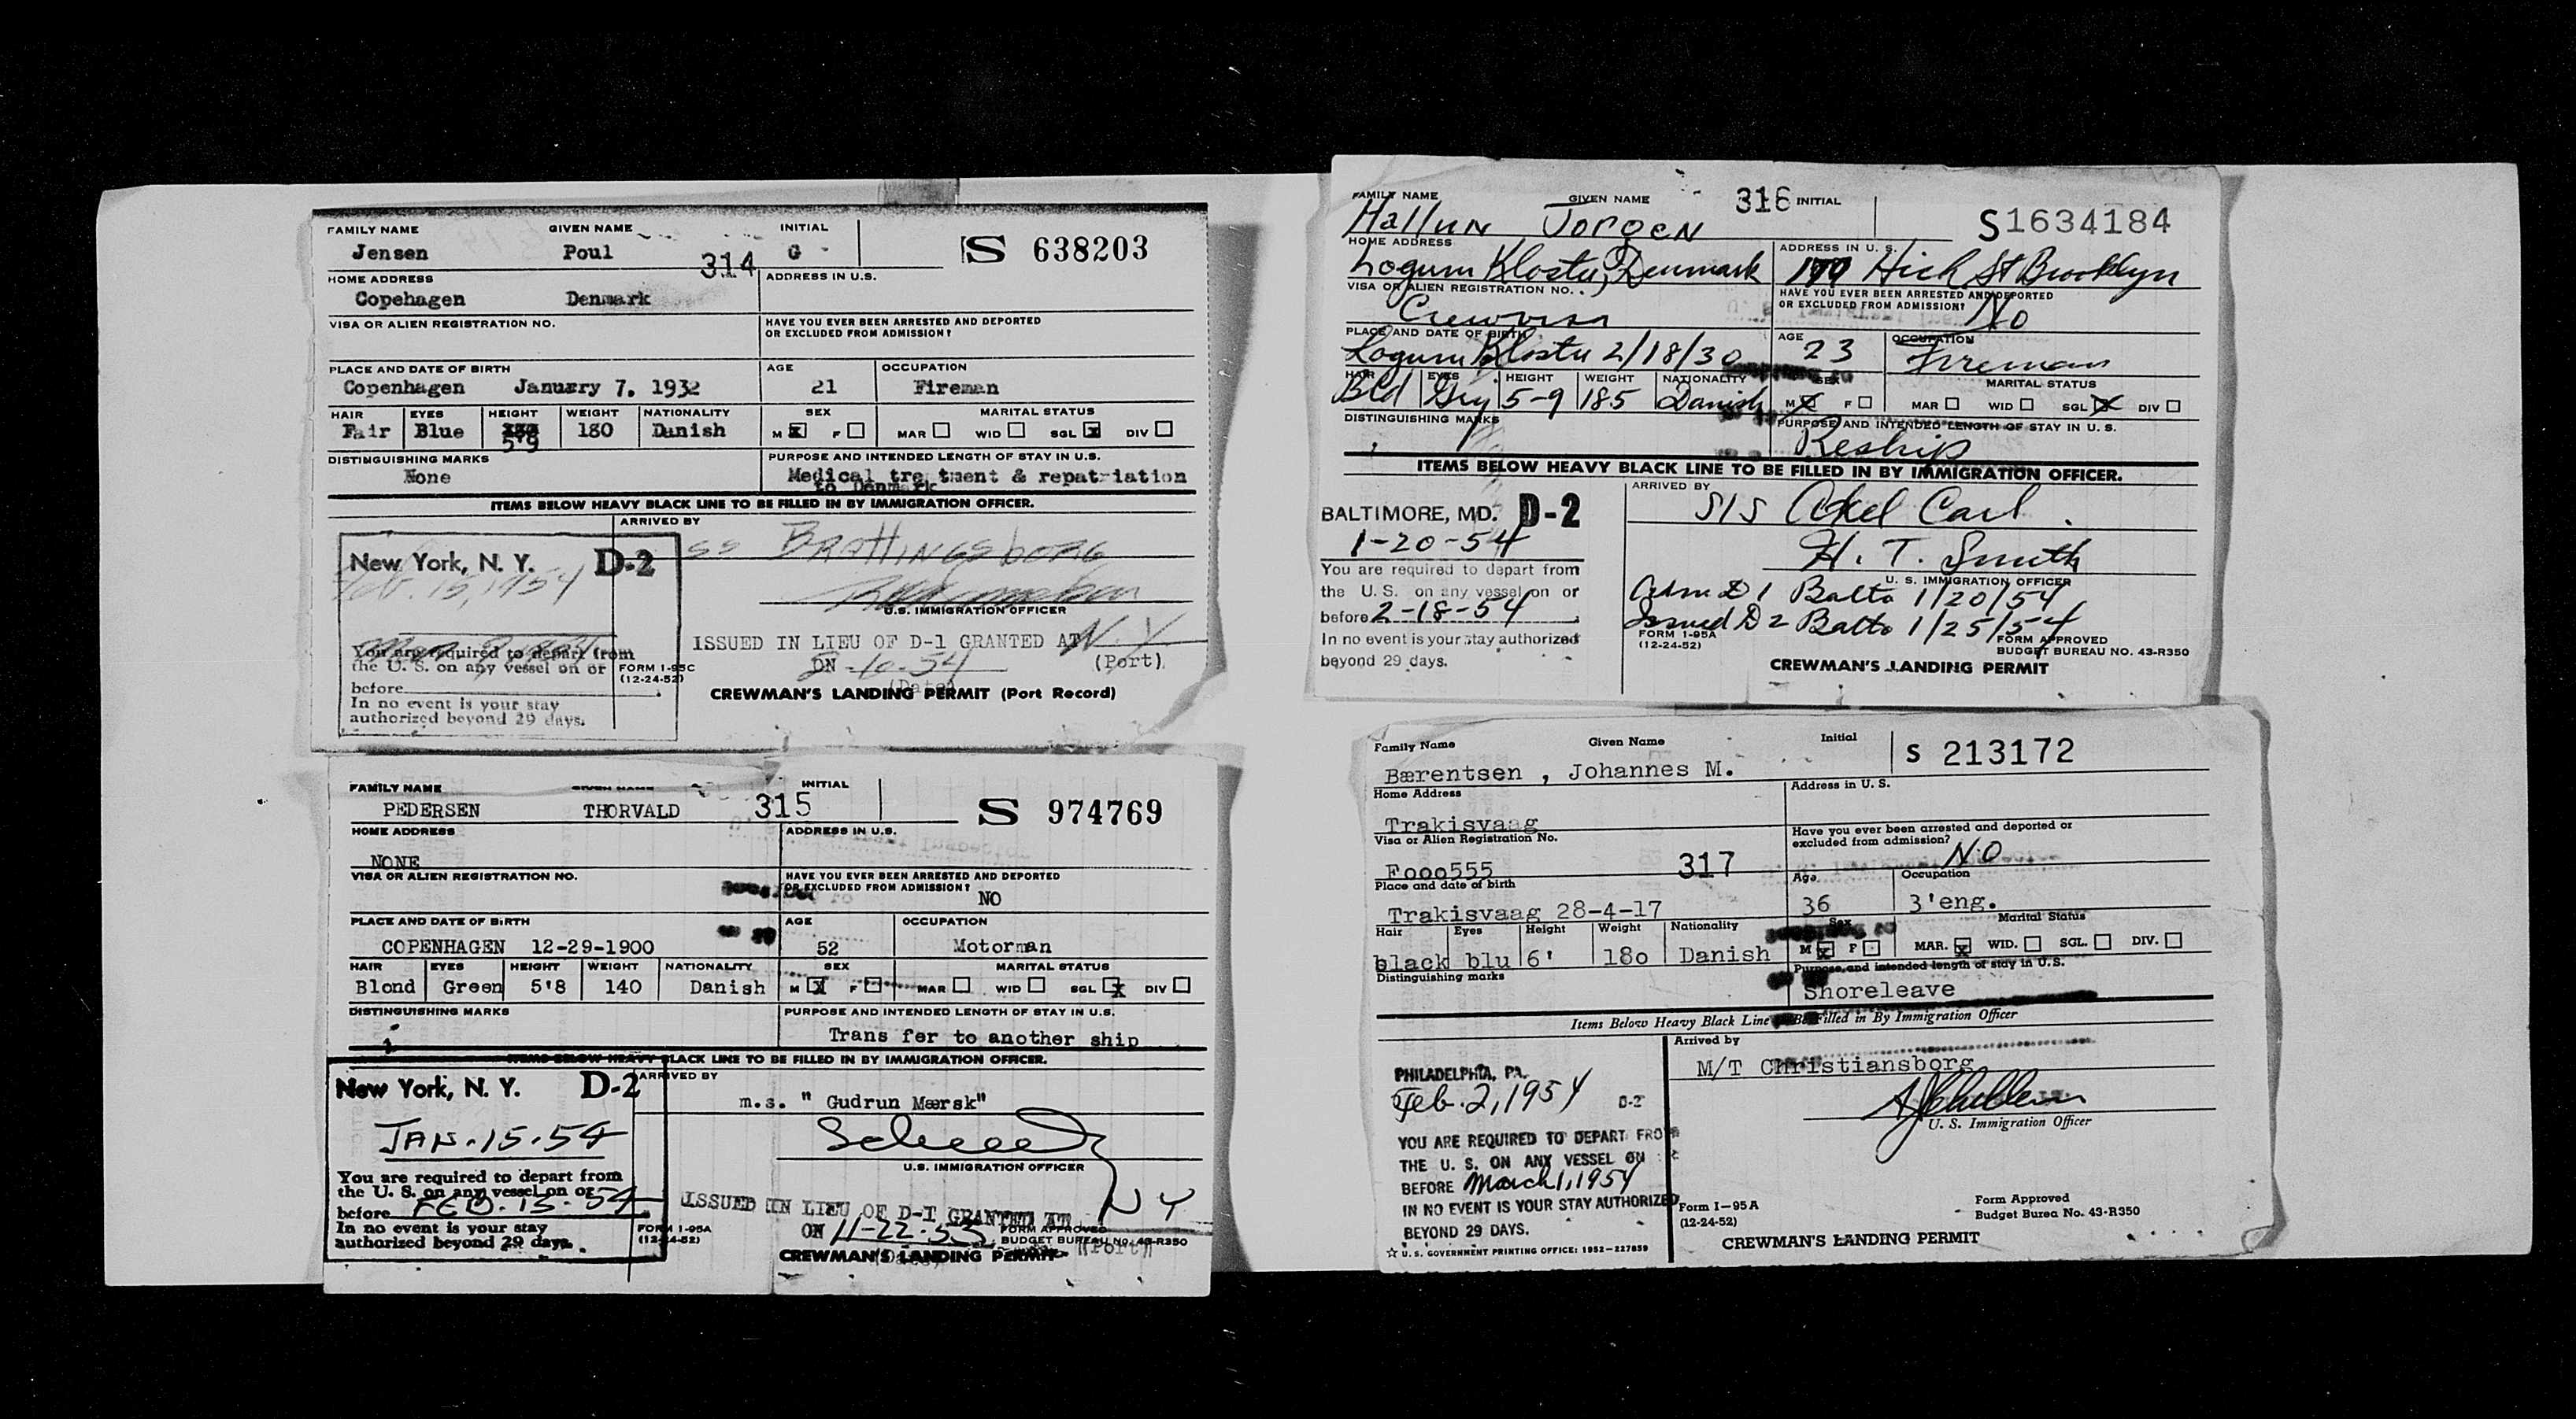 FAMILY NAME GIVEN NAME INITIAL
Jensen Poul 314 G S 638203
HOME ADDRESS ADDRESS IN U.S.
Copehagen Denmark
VISA OR ALIEN REGISTRATION NO. HAVE YOU EVER BEEN ARRESTED AND DEPORTED
OR EXCLUDED FROM ADMISSION?
PLACE AND DATE OF BIRTH AGE OCCUPATION
Copenhagen January 7, 1932 21 Fireman
HAIR EYES HEIGHT WEIGHT NATIONALITY SEX MARITAL STATUS
Fair Blue 5'9 180 Danish M X F MAR WID SGL X DIV
DISTINGUISHING MARKS PURPOSE AND INTENDED LENGTH OF STAY IN U.S.
None Medical tre tment & repatriation
to Denmark
ITEMS BELOW HEAVY BLACK LINE TO BE FILLED IN BY IMMIGRATION OFFICER.
ARRIVED BY
SS BRATTINGSBORG
New York, N. Y. D-2
Feb. 15, 1954
U.S. IMMIGRATION OFFICER
ISSUED IN LIEU OF D-1 GRANTED AT N.Y
ON 2-10-54 (Port)
(Date)
You are required to depart from
the U. S. on any vessel on or
before
In no event is your stay
authorized beyond 29 days.
FORM 1-95C
(12-24-52)
CREWMAN'S LANDING PERMIT (Port Record)
FAMILY NAME GIVEN NAME INITIAL
PEDERSEN THORVALD 315 S 974769
HOME ADDRESS ADDRESS IN U.S.
NONE
VISA OR ALIEN REGISTRATION NO. HAVE YOU EVER BEEN ARRESTED AND DEPORTED
OR EXCLUDED FROM ADMISSION?
NO
PLACE AND DATE OF BIRTH AGE OCCUPATION
COPENHAGEN 12-29-1900 52 Motorman
HAIR EYES HEIGHT WEIGHT NATIONALITY SEX MARITAL STATUS
Blond Green 5'8 140 Danish M X F MAR WID SGL X DIV
DISTINGUISHING MARKS PURPOSE AND INTENDED LENGTH OF STAY IN U.S.
Trans fer to another ship
ITEMS BELOW HEAVY BLACK LINE TO BE FILLED IN BY IMMIGRATION OFFICER.
New York, N. Y. D-2 ARRIVED BY
m.s. " Gudrun Mærsk"
JAN. 15. 54
U.S. IMMIGRATION OFFICER
You are required to depart from
the U. S. on any vessel on or
before FEB. 15. 54
In no event is your stay
authorized beyond 29 days.
ISSUED IN LIEU OF D-1 GRANTED AT N Y
ON 11-22-53 (Port)
(Date)
FORM 1-95A
(12-24-52)
FORM APPROVED
BUDGET BUREAU NO. 43-R350
CREWMAN'S LANDING PERMIT
FAMILY NAME GIVEN NAME 316 INITIAL
Hallun Jorgen S1634184
HOME ADDRESS ADDRESS IN U. S.
Logum Kloster, Denmark 170 Hick St Brooklyn
VISA OR ALIEN REGISTRATION NO. HAVE YOU EVER BEEN ARRESTED AND DEPORTED
OR EXCLUDED FROM ADMISSION?
Crewvisa No
PLACE AND DATE OF BIRTH AGE OCCUPATION
Logum Kloster 2/18/30 23 Fireman
HAIR EYES HEIGHT WEIGHT NATIONALITY SEX MARITAL STATUS
Bld Gry 5-9 185 Danish M X F MAR WID SGL X DIV
DISTINGUISHING MARKS PURPOSE AND INTENDED LENGTH OF STAY IN U. S.
Reship
ITEMS BELOW HEAVY BLACK LINE TO BE FILLED IN BY IMMIGRATION OFFICER.
ARRIVED BY
S/S Axel Carl
BALTIMORE, MD. D-2
1-20-54
H. T. Smith
U. S. IMMIGRATION OFFICER
You are required to depart from
the U.S. on any vessel on or
before 2-18-54
In no event is your stay authorized
beyond 29 days.
Adm D 1 Balto 1/20/54
Issued D 2 Balto 1/25/54
FORM 1-95A
(12-24-52)
FORM APPROVED
BUDGET BUREAU NO. 43-R350
CREWMAN'S LANDING PERMIT
Family Name Given Name Initial
Bærentsen , Johannes M. S 213172
Home Address Address in U. S.
Trakisvaag
Visa or Alien Registration No. Have you ever been arrested and deported or
excluded from admission?
Fooo555 317 NO
Place and date of birth Age Occupation
Trakisvaag 28-4-17 36 3'eng.
Hair Eyes Height Weight Nationality Sex Marital Status
black blu 6' 18o Danish M X F MAR. X WID. SGL. DIV.
Distinguishing marks Purpose and intended length of stay in U.S.
Shoreleave
Items Below Heavy Black Line To Be Filled in By Immigration Officer
Arrived by
M/T Christiansborg
PHILADELPHIA, PA.
Feb. 2, 1954 D-2
U. S. Immigration Officer
YOU ARE REQUIRED TO DEPART FROM
THE U. S. ON ANY VESSEL ON
BEFORE March 1, 1954
IN NO EVENT IS YOUR STAY AUTHORIZED
BEYOND 29 DAYS.
☆ U. S. GOVERNMENT PRINTING OFFICE: 1952—227839
Form I—95A
(12-24-52)
Form Approved
Budget Burea No. 43-R350
CREWMAN'S LANDING PERMIT